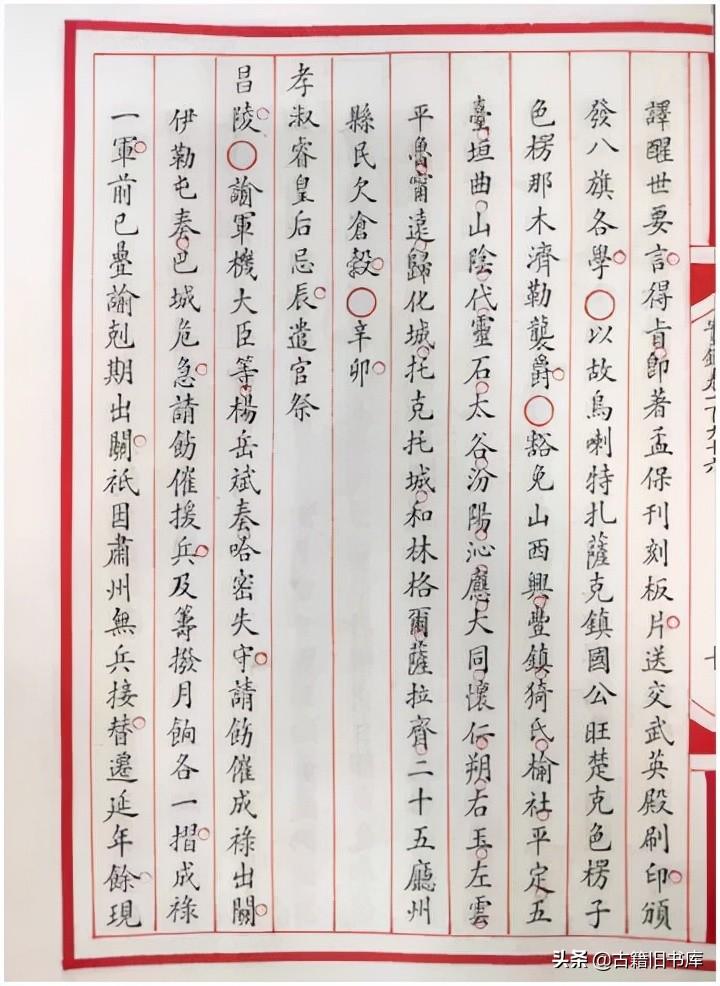 譯醒世要言。得旨。即著孟保刊刻板片。送交武英殿刷印。頒
發八旗各學。○以故烏喇特扎薩克鎮國公旺楚克色楞子
色楞那木濟勒襲爵。○豁免山西興豐鎮猗氏榆社平定五
臺垣曲山陰代靈石太谷汾陽沁應大同懷仁朔右玉左雲
平魯甯遠歸化城托克托城和林格爾薩拉齊二十五廳州
縣民欠倉穀。○辛卯。
孝淑睿皇后忌辰。遣官祭
昌陵。○諭軍機大臣等楊岳斌奏哈密失守。請飭催成祿出關。
伊勒屯奏巴城危急。請飭催援兵。及籌撥月餉各一摺。成祿
一軍。前已疊諭剋期出關。祇因肅州無兵接替。遷延年餘。現
頭条 @古籍旧书库